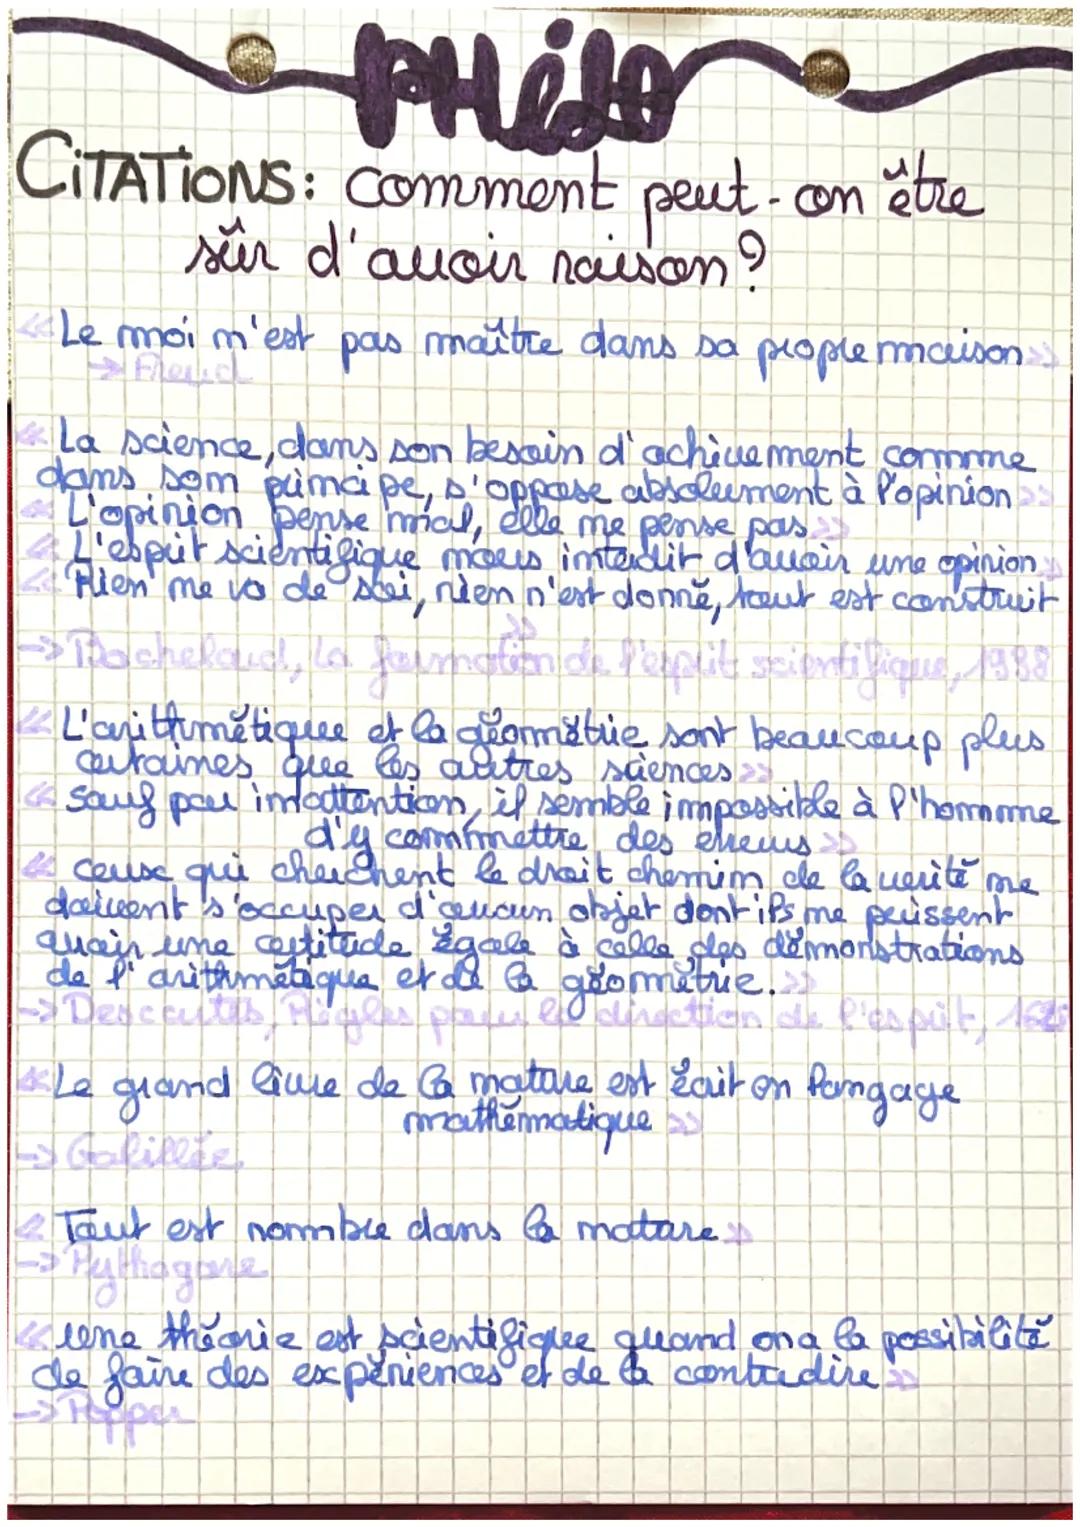 PHilo
CiTATiONS: comment peut-on être
sûr d'avoir raison?
«Le moi n'est pas maître dans sa propre maison»
→ Freud
«La science, dans son besoin d'achèvement comme
dans son principe, s'oppose absolument à l'opinion»
«L'opinion pense mal, elle ne pense pas»
«L'esprit scientifique nous interdit d'avoir une opinion»
«Rien ne va de soi, rien n'est donné, tout est construit
»
→ Bachelard, La formation de l'esprit scientifique, 1938
«L'arithmétique et la géométrie sont beaucoup plus
certaines que les autres sciences»
«Sauf par inattention, il semble impossible à l'homme
d'y commettre des erreurs»
«Ceux qui cherchent le droit chemin de la vérité ne
doivent s'occuper d'aucun objet dont ils ne puissent
avoir une certitude égale à celle des démonstrations
de l'arithmétique et de la géométrie.»
→ Descartes, Règles pour la direction de l'esprit,
«Le grand livre de la nature est écrit en langage
mathématique»
→ Galillée
«Tout est nombre dans la nature»
→ Pythagore
«Une théorie est scientifique quand on a la possibilité
de faire des expériences et de la contredire»
→ Popper